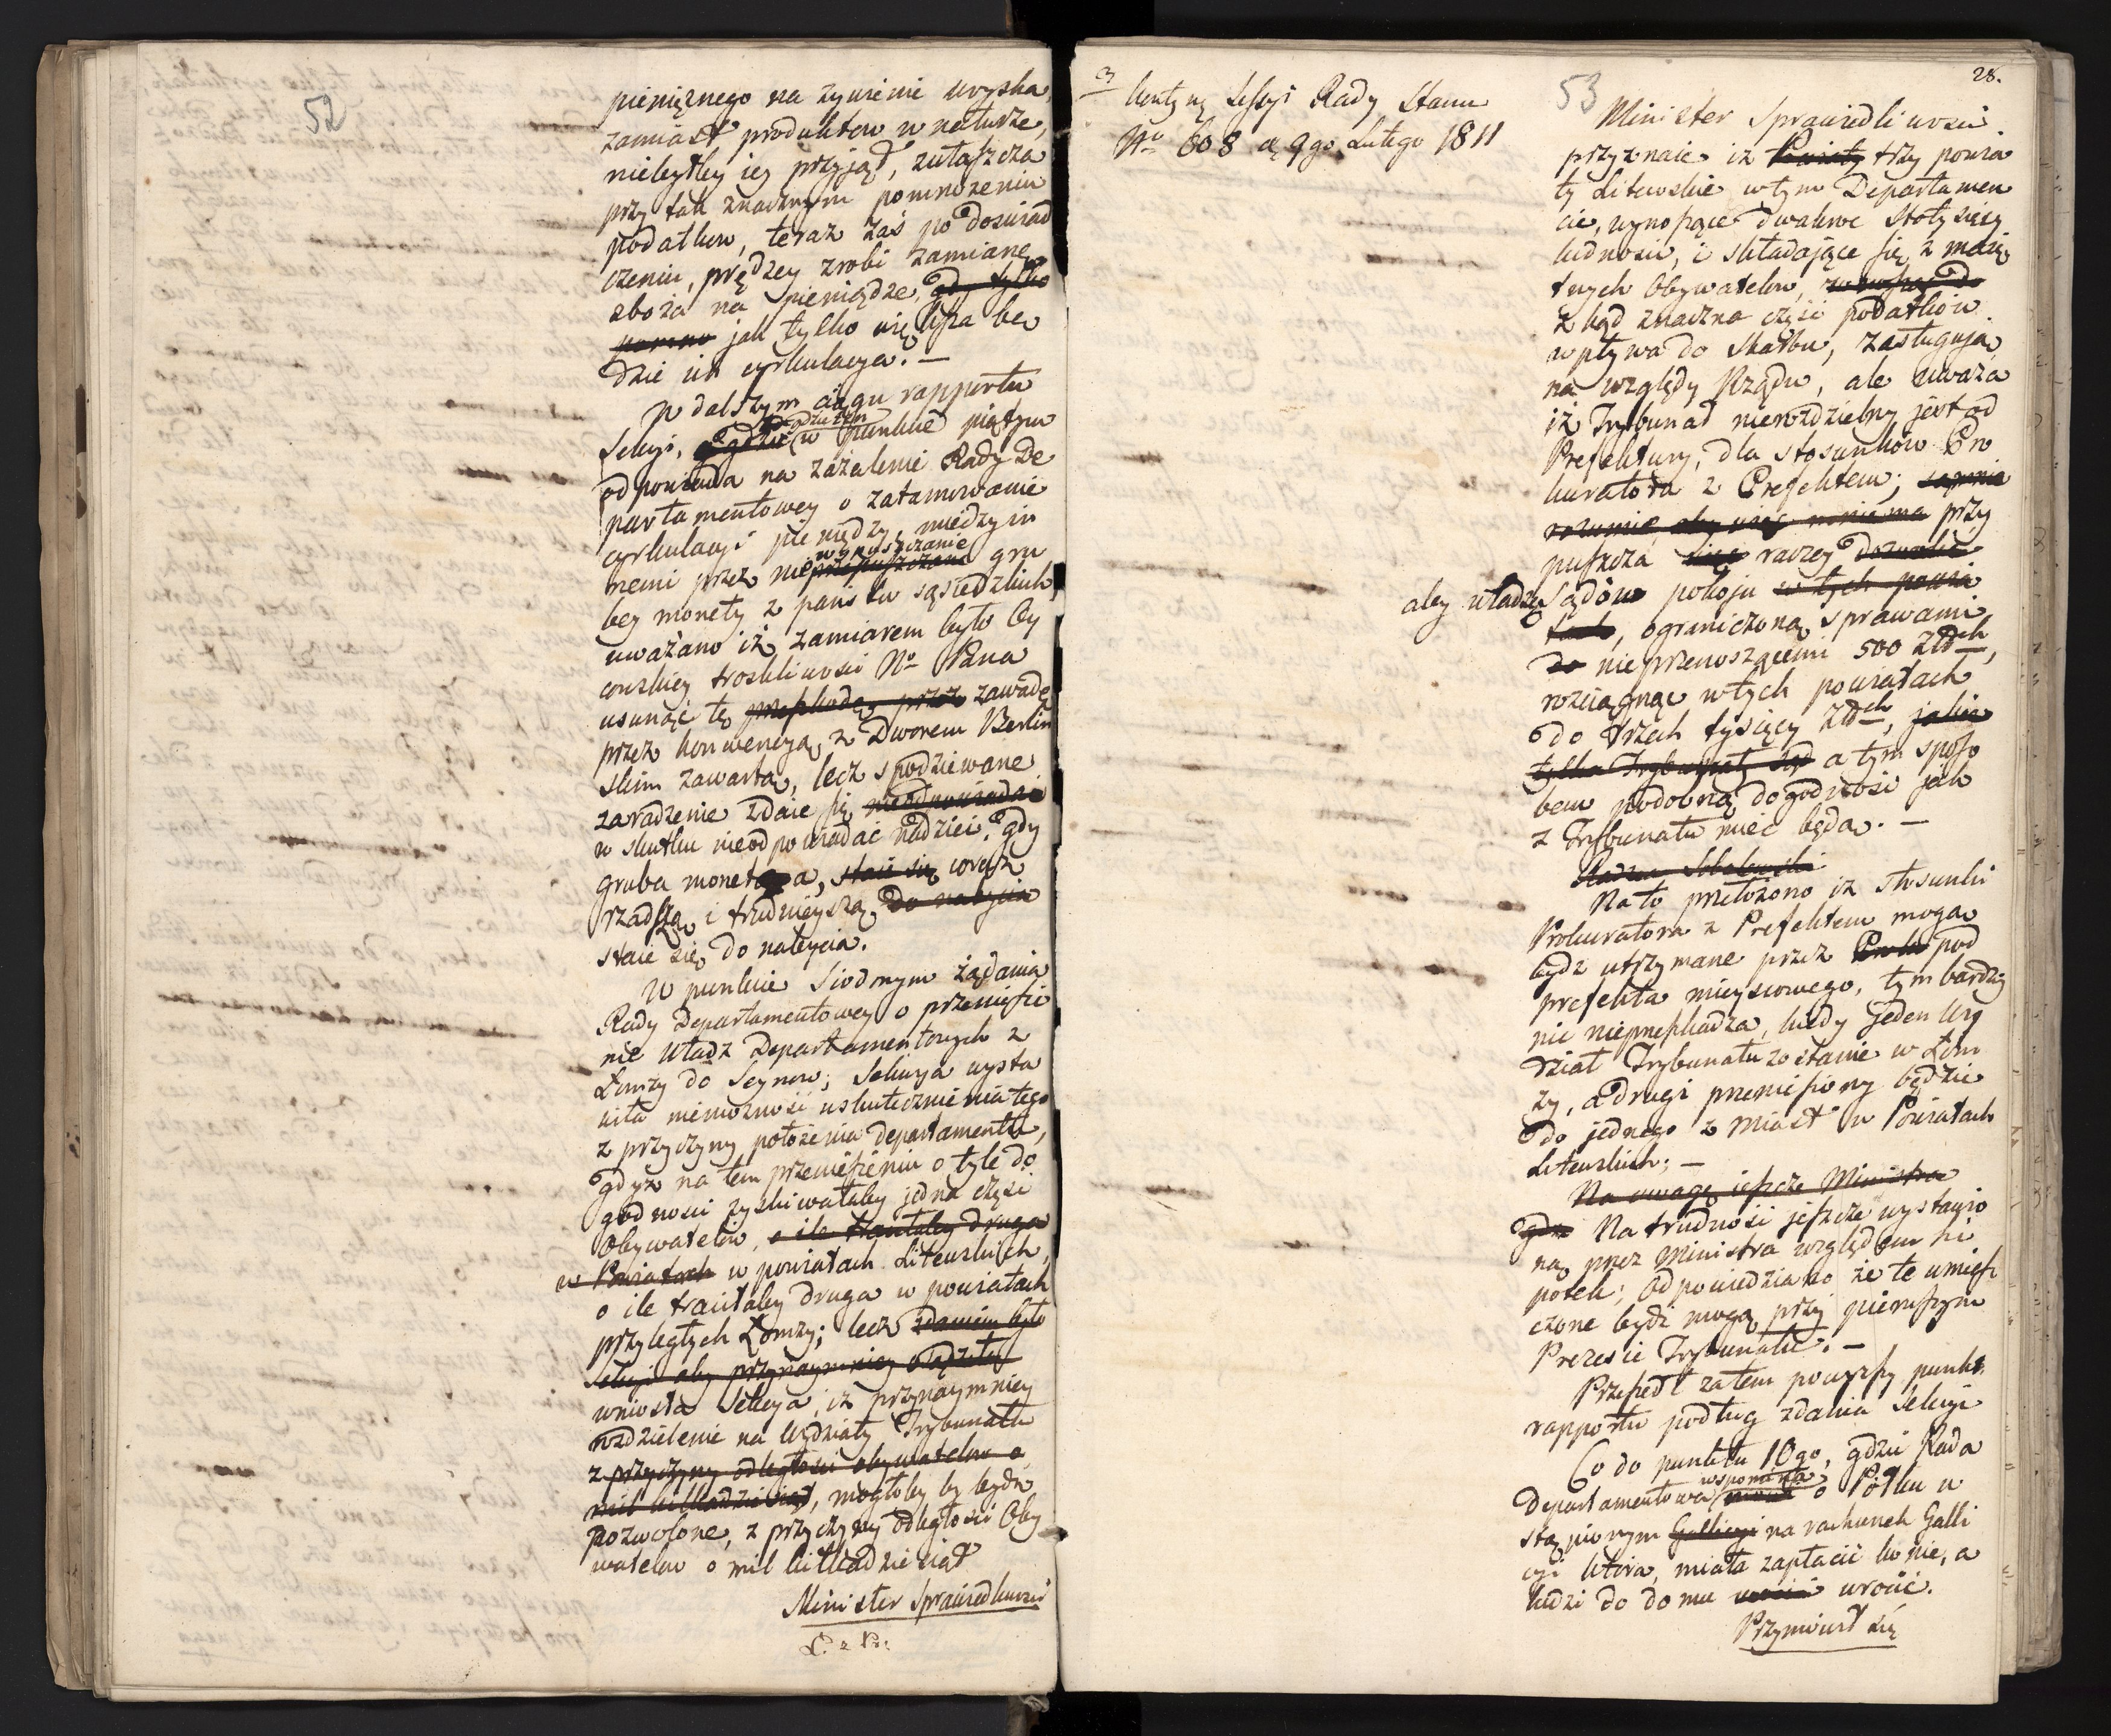 52
pieniężnego na żywienie woyska,
zamiast produktow w naturze,
niebyłby iey przyjął, zwłaszcza
przy tak znacznym pomnożeniu
podatkow, teraz zaś po doświad
czeniu, prędzey zrobi zamianę
zboża na pieniądze, gdy tylko
pewna jak tylko więksża bę
dzie ich cyrkulacya. —
W dalszym ciągu rapportu
Sekcyi, gdzie w punkcie piątym
odpowiada na zażalenie Rady De
partamentowey o zatamowanie
cyrkulacyi pieniędzy, między in
nemi przez nie wypuszczanie gru
bey monety z państw sąsiedzkich,
uważano iż zamiarem było Oy
cowskiey troskliwości No Pana
usunąć tę przeszkodę przez zawadę
przez konwencyą z Dworem Berliń
skim zawartą, lecz spodziewane
zaradzenie zdaie się nieodpowiadać
w skutku nieodpowiadać nadziei, gdy
gruba moneta, staie się coraz
rzadszą i trudnieyszą do nabycia
staie się do nabycia.
W punkcie siodmym żądania
Rady Departamentowey o przeniesie
nie Władz Departamentowych z
Łomży do Seynow; Sekcya wysta
wiła niemożność uskutecznienia tego
z przyczyny położenia departamentu,
gdyż na tem przeniesieniu o tyle do
godności zyskiwałaby jedna część
Obywatelow, o ile traciłaby druga
w Powiatach w powiatach Litewskich,
o ile traciłaby druga w powiatach
przyległych Łomży; lecz zdaniem było
Sekcyi aby przynaymniey
wniosła Sekcya, iż przynaymniey
rozdzielenie na Wydziały Trybunału
z przyczyny odległości obywatelow o
mil kilkadziesiąt, mogłoby by bydź
pozwolone, z przyczyny odległości Oby
watelow o mil kilkadziesiąt
Minister Sprawiedliwości
3
kontyn. Sessyi Rady Stanu
No 608 d. 9go Lutego 1811
53
28.
Minister Sprawiedliwości
przyznaie iż Powiaty trzy powia
ty Litewskie w tym Departamen
cie, wynoszące dwakroć stotysięcy
ludności, i składające się z maię
tnych Obywatelow,
z kąd znaczna część podatków
wpływa do Skarbu, zasługują
na względy Rządu, ale uważa
iż Trybunał nierozdzielny jest od
Prefektury, dla stosunków Pro
kuratora z Prefektem;
rozumie, aby przy
puszcza raczey dozwolić
aby władzę Sądów pokoju w tych powia
tach, ograniczoną sprawami
do nieprzenoszącemi 500 Złch,
rozciągnąć w tych powiatach
do trzech tysięcy Złch, jakie
tylko a tym sposo
bem podobną dogodność jak
z Trybunału mieć będą. —
Na to przełożono iż stosunki
Prokuratora z Prefektem mogą
bydź utrzymane przez pod
prefekta mieyscowego, tym bardziey
nic nieprzeszkadza, kiedy jeden Wy
dział Trybunału zostanie w Łom
ży, a drugi przeniesiony będzie
do jednego z miast w Powiatach
Litewskich; —
Na uwagę jeszcze Ministra
gdy Na trudność jeszcze wystawio
ną przez Ministra względem hi
potek; Odpowiedziano że te umiesz
czone bydź mogą przy pierwszym
Prezesie Trybunału. —
Przeszedł zatem powyższy punkt
rapportu podług zdania Sekcyi
Co do punktu 10go, gdzie Rada
Departamentowa wspomina o Półku w
stąpionym Gallicyi na rachunek Galli
cyi która, miała zapłacić konie, a
ludzi do domu wrócić.
Przymówił się